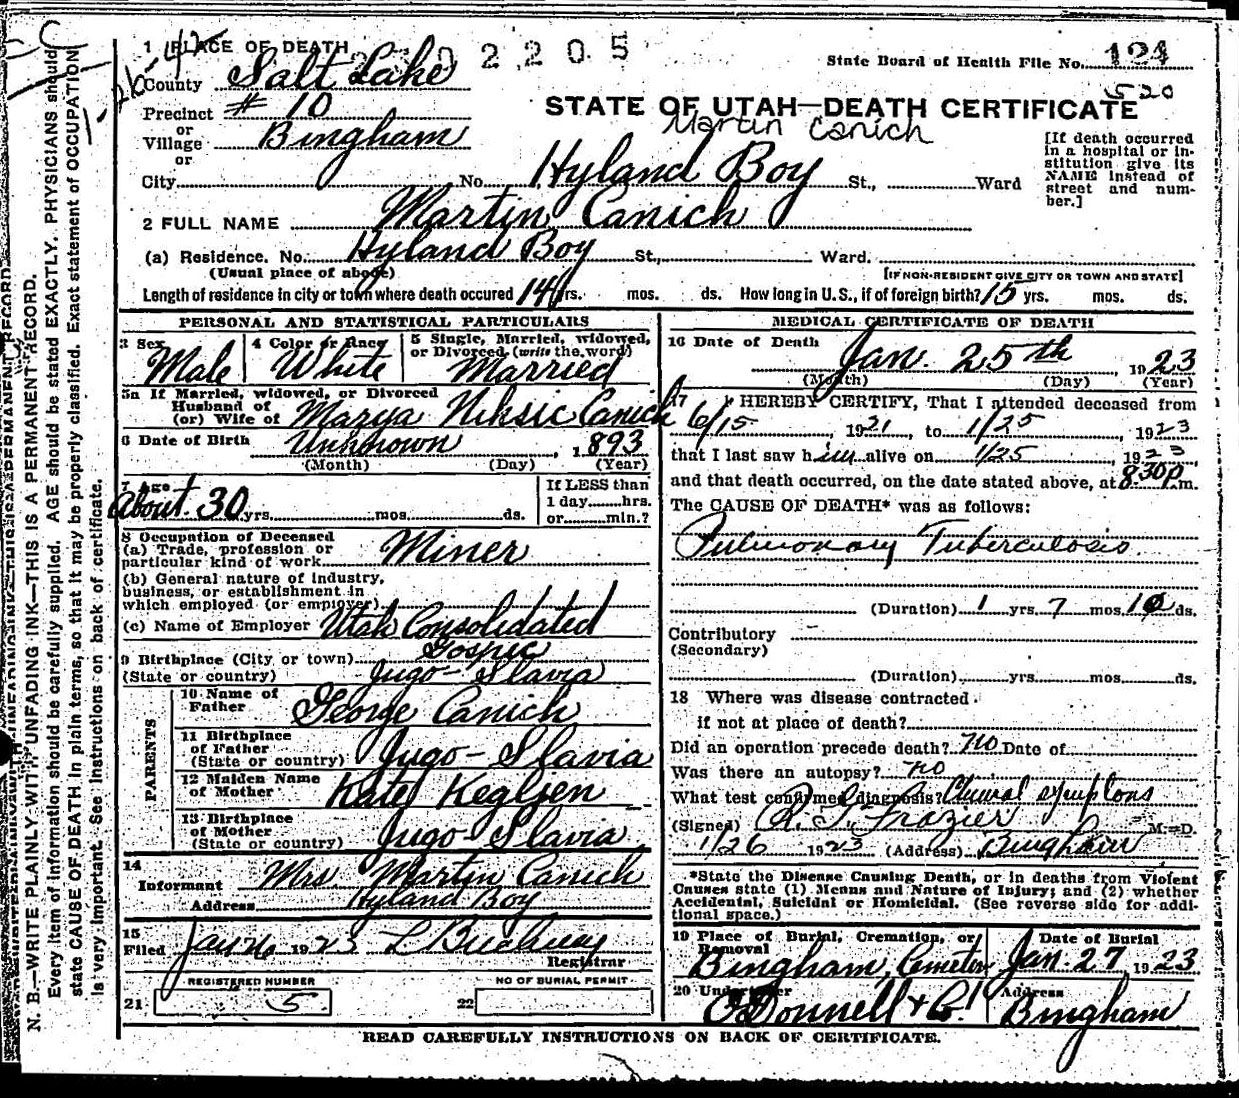 2 2 0 5
State Board of Health File No. 124
520
1 PLACE OF DEATH
County Salt Lake
Precinct # 10
or
Village Bingham
or
City No. Hyland Boy St., Ward
STATE OF UTAH—DEATH CERTIFICATE
Martin Canich
[If death occurred
in a hospital or in-
stitution give its
NAME instead of
street and num-
ber.]
2 FULL NAME Martin Canich
(a) Residence. No. Hyland Boy St., Ward.
(Usual place of abode) [IF NON-RESIDENT GIVE CITY OR TOWN AND STATE]
Length of residence in city or town where death occured 14 yrs. mos. ds. How long in U.S., if of foreign birth? 15 yrs. mos. ds.
PERSONAL AND STATISTICAL PARTICULARS
3 Sex Male
4 Color or Race White
5 Single, Married, widowed,
or Divorced (write the word)
Married
5a If Married, widowed, or Divorced
Husband of
(or) Wife of Marya Niksic Canich
6 Date of Birth Unknown, 1893
(Month) (Day) (Year)
7 Age About 30 yrs. mos. ds.
If LESS than
1 day hrs.
or min.?
8 Occupation of Deceased
(a) Trade, profession or
particular kind of work Miner
(b) General nature of industry,
business, or establishment in
which employed (or employer)
(c) Name of Employer Utah Consolidated
9 Birthplace (City or town) Gospic
(State or country) Jugo-Slavia
PARENTS
10 Name of
Father George Canich
11 Birthplace
of Father
(State or country) Jugo-Slavia
12 Maiden Name
of Mother Kate Kegljen
13 Birthplace
of Mother
(State or country) Jugo Slavia
14
Informant Mrs Martin Canich
Address Hyland Boy
15
Filed Jan 26 1923
Registrar
REGISTERED NUMBER
21 5
NO OF BURIAL PERMIT
22
MEDICAL CERTIFICATE OF DEATH
16 Date of Death
Jan. 25th, 1923
(Month) (Day) (Year)
17 I HEREBY CERTIFY, That I attended deceased from
6/15, 1921, to 1/25, 1923
that I last saw him alive on 1/25, 1923
and that death occurred, on the date stated above, at 8.30P.m.
The CAUSE OF DEATH* was as follows:
Pulmonary Tuberculosis
(Duration) 1 yrs. 7 mos. 10 ds.
Contributory
(Secondary)
(Duration) yrs. mos. ds.
18 Where was disease contracted
if not at place of death?
Did an operation precede death? no Date of
Was there an autopsy? no
What test confirmed diagnosis? Clinical symptons
(Signed) R. G. Frazier M. D.
1/26 1923 (Address) Bingham
*State the Disease Causing Death, or in deaths from Violent
Causes state (1) Means and Nature of Injury; and (2) whether
Accidental, Suicidal or Homicidal. (See reverse side for addi-
tional space.)
19 Place of Burial, Cremation, or
Removal
Bingham, Cemetery
Date of Burial
Jan. 27 1923
20 Undertaker
O'Donnell & Co.
Address
Bingham
READ CAREFULLY INSTRUCTIONS ON BACK OF CERTIFICATE.
N. B.—WRITE PLAINLY WITH UNFADING INK—THIS IS A PERMANENT RECORD.
Every item of information should be carefully supplied. AGE should be stated EXACTLY. PHYSICIANS should
state CAUSE OF DEATH in plain terms, so that it may be properly classified. Exact statement of OCCUPATION
is very important. See instructions on back of certificate.